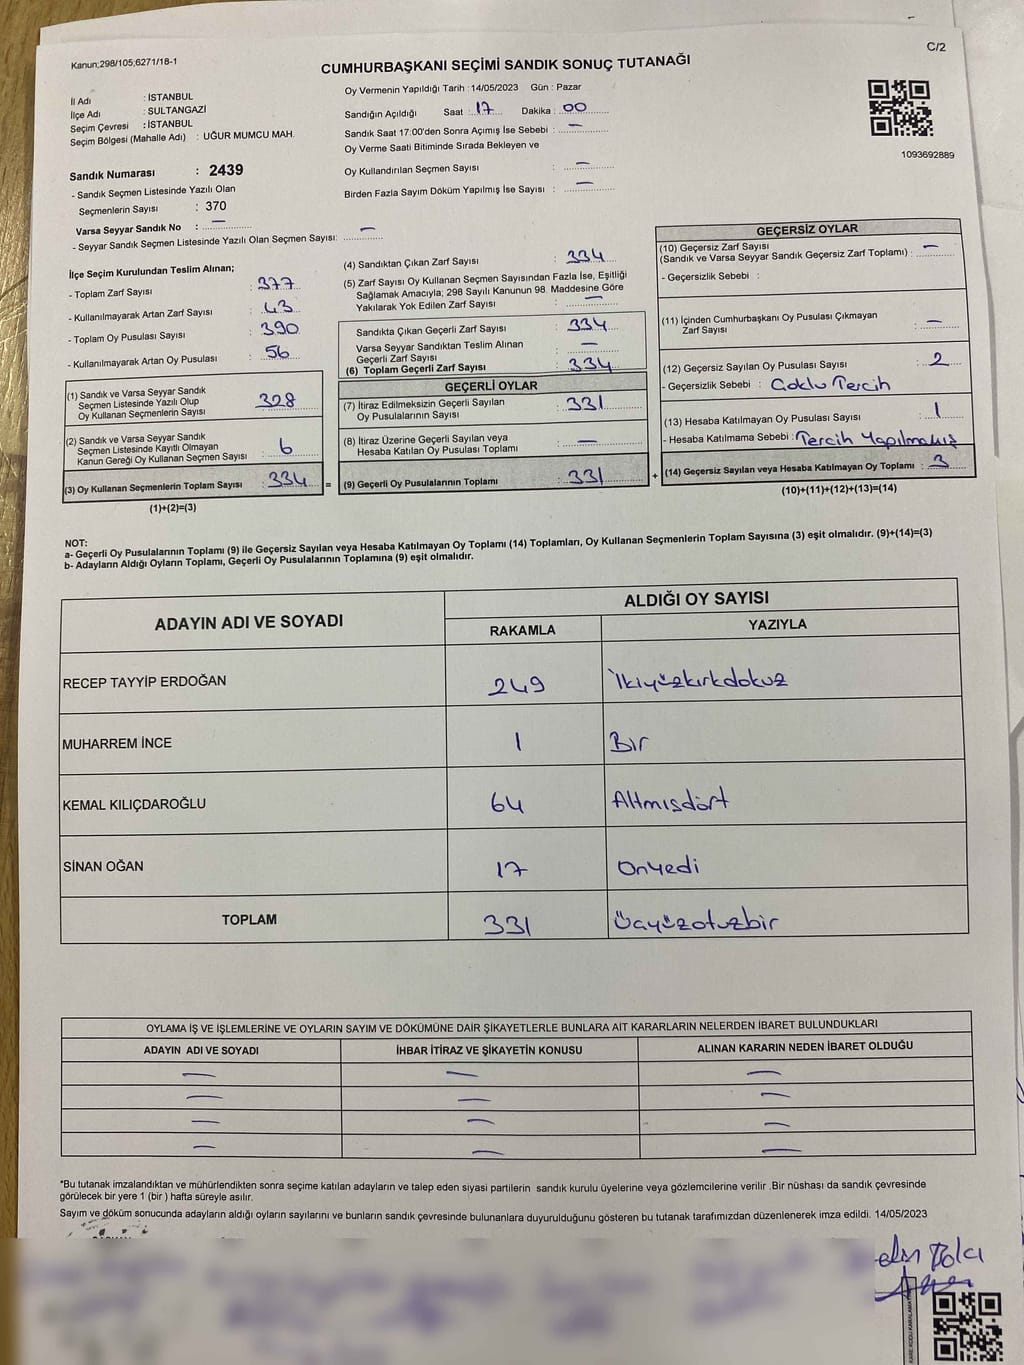 Kanun;298/105;6271/18-1
C/2
CUMHURBAŞKANI SEÇİMİ SANDIK SONUÇ TUTANAĞI
İl Adı : İSTANBUL
İlçe Adı : SULTANGAZİ
Seçim Çevresi : İSTANBUL
Seçim Bölgesi (Mahalle Adı) : UĞUR MUMCU MAH.
Sandık Numarası : 2439
- Sandık Seçmen Listesinde Yazılı Olan
Seçmenlerin Sayısı : 370
Varsa Seyyar Sandık No : —
- Seyyar Sandık Seçmen Listesinde Yazılı Olan Seçmen Sayısı: —
Oy Vermenin Yapıldığı Tarih : 14/05/2023 Gün : Pazar
Sandığın Açıldığı Saat : 17 Dakika : 00
Sandık Saat 17:00'den Sonra Açımış İse Sebebi : —
Oy Verme Saati Bitiminde Sırada Bekleyen ve
Oy Kullandırılan Seçmen Sayısı : —
Birden Fazla Sayım Döküm Yapılmış İse Sayısı : —
1093692889
İlçe Seçim Kurulundan Teslim Alınan;
- Toplam Zarf Sayısı : 377
- Kullanılmayarak Artan Zarf Sayısı : 43
- Toplam Oy Pusulası Sayısı : 390
- Kullanılmayarak Artan Oy Pusulası : 56
(1) Sandık ve Varsa Seyyar Sandık
Seçmen Listesinde Yazılı Olup
Oy Kullanan Seçmenlerin Sayısı : 328
(2) Sandık ve Varsa Seyyar Sandık
Seçmen Listesinde Kayıtlı Olmayan
Kanun Gereği Oy Kullanan Seçmen Sayısı : 6
(3) Oy Kullanan Seçmenlerin Toplam Sayısı : 334 =
(1)+(2)=(3)
(4) Sandıktan Çıkan Zarf Sayısı : 334
(5) Zarf Sayısı Oy Kullanan Seçmen Sayısından Fazla İse, Eşitliği
Sağlamak Amacıyla; 298 Sayılı Kanunun 98. Maddesine Göre
Yakılarak Yok Edilen Zarf Sayısı : —
Sandıkta Çıkan Geçerli Zarf Sayısı : 334
Varsa Seyyar Sandıktan Teslim Alınan
Geçerli Zarf Sayısı : —
(6) Toplam Geçerli Zarf Sayısı : 334
GEÇERLİ OYLAR
(7) İtiraz Edilmeksizin Geçerli Sayılan
Oy Pusulalarının Sayısı : 331
(8) İtiraz Üzerine Geçerli Sayılan veya
Hesaba Katılan Oy Pusulası Toplamı : —
(9) Geçerli Oy Pusulalarının Toplamı : 331 +
GEÇERSİZ OYLAR
(10) Geçersiz Zarf Sayısı
(Sandık ve Varsa Seyyar Sandık Geçersiz Zarf Toplamı) : —
- Geçersizlik Sebebi :
(11) İçinden Cumhurbaşkanı Oy Pusulası Çıkmayan
Zarf Sayısı : —
(12) Geçersiz Sayılan Oy Pusulası Sayısı : 2
- Geçersizlik Sebebi : Çoklu Tercih
(13) Hesaba Katılmayan Oy Pusulası Sayısı : 1
- Hesaba Katılmama Sebebi : Tercih Yapılmamış
(14) Geçersiz Sayılan veya Hesaba Katılmayan Oy Toplamı : 3
(10)+(11)+(12)+(13)=(14)
NOT:
a- Geçerli Oy Pusulalarının Toplamı (9) ile Geçersiz Sayılan veya Hesaba Katılmayan Oy Toplamı (14) Toplamları, Oy Kullanan Seçmenlerin Toplam Sayısına (3) eşit olmalıdır. (9)+(14)=(3)
b- Adayların Aldığı Oyların Toplamı, Geçerli Oy Pusulalarının Toplamına (9) eşit olmalıdır.
ADAYIN ADI VE SOYADI
ALDIĞI OY SAYISI
RAKAMLA YAZIYLA
RECEP TAYYİP ERDOĞAN 249 İkiyüzkırkdokuz
MUHARREM İNCE 1 Bir
KEMAL KILIÇDAROĞLU 64 Altmışdört
SİNAN OĞAN 17 Onyedi
TOPLAM 331 üçyüzotuzbir
OYLAMA İŞ VE İŞLEMLERİNE VE OYLARIN SAYIM VE DÖKÜMÜNE DAİR ŞİKAYETLERLE BUNLARA AİT KARARLARIN NELERDEN İBARET BULUNDUKLARI
ADAYIN ADI VE SOYADI İHBAR İTİRAZ VE ŞİKAYETİN KONUSU ALINAN KARARIN NEDEN İBARET OLDUĞU
— — —
— — —
— — —
— — —
*Bu tutanak imzalandıktan ve mühürlendikten sonra seçime katılan adayların ve talep eden siyasi partilerin sandık kurulu üyelerine veya gözlemcilerine verilir .Bir nüshası da sandık çevresinde
görülecek bir yere 1 (bir ) hafta süreyle asılır.
Sayım ve döküm sonucunda adayların aldığı oyların sayılarını ve bunların sandık çevresinde bulunanlara duyurulduğunu gösteren bu tutanak tarafımızdan düzenlenerek imza edildi. 14/05/2023